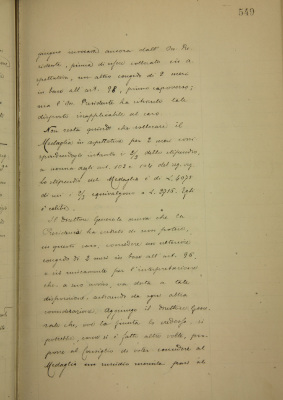 549
ancora dall' On. Pre
sidente, prima di esser collocato in a
spettativa, un altro congedo di 2 mesi
in base all' art. 98, primo capoverso;
ma l' On. Presidente ha ritenuto tale
disposto inapplicabile al caso.
Non resta quindi che collocare il
Medaglia in aspettativa per 2 mesi corri
spondendogli intanto i 2/3 dello stipendio,
a norma degli art. 102 e del reg.
Lo stipendio del Medaglia è di L.
di cui i 2/3 equivalgono a L. 2716. Egli
è
Il Direttore Generale nota che la
Presidenza ha creduto di non potere,
in questo caso, concedere un ulteriore
congedo di 2 mesi in base all' art. 98
e ciò unicamente per l' interpretazione
che, a suo avviso, va data a tale
disposizione, astraendo da ogni altra
considerazione. Aggiunge il Direttore Gene
rale che, ove la Giunta lo credesse, si
potrebbe, come si è fatto altre volte, pro
porre al Consiglio di voler concedere al
Medaglia un sussidio mensile pari al